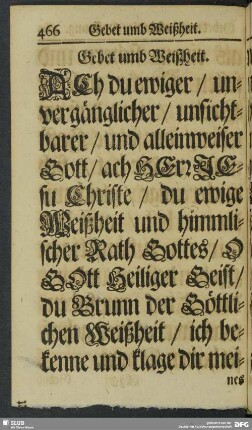 466 Gebet umb Weißheit.
Gebet umb Weißheit.
ACh du ewiger / un-
vergänglicher / unsicht-
barer / und alleinweiser
Gott / ach HErr JE-
su Christe / du ewige
Weißheit und himmli-
scher Rath Gottes / O
GOtt Heiliger Geist /
du Brunn der Göttli-
chen Weißheit / ich be-
kenne und klage dir mei-
nes
SLUB
DFG